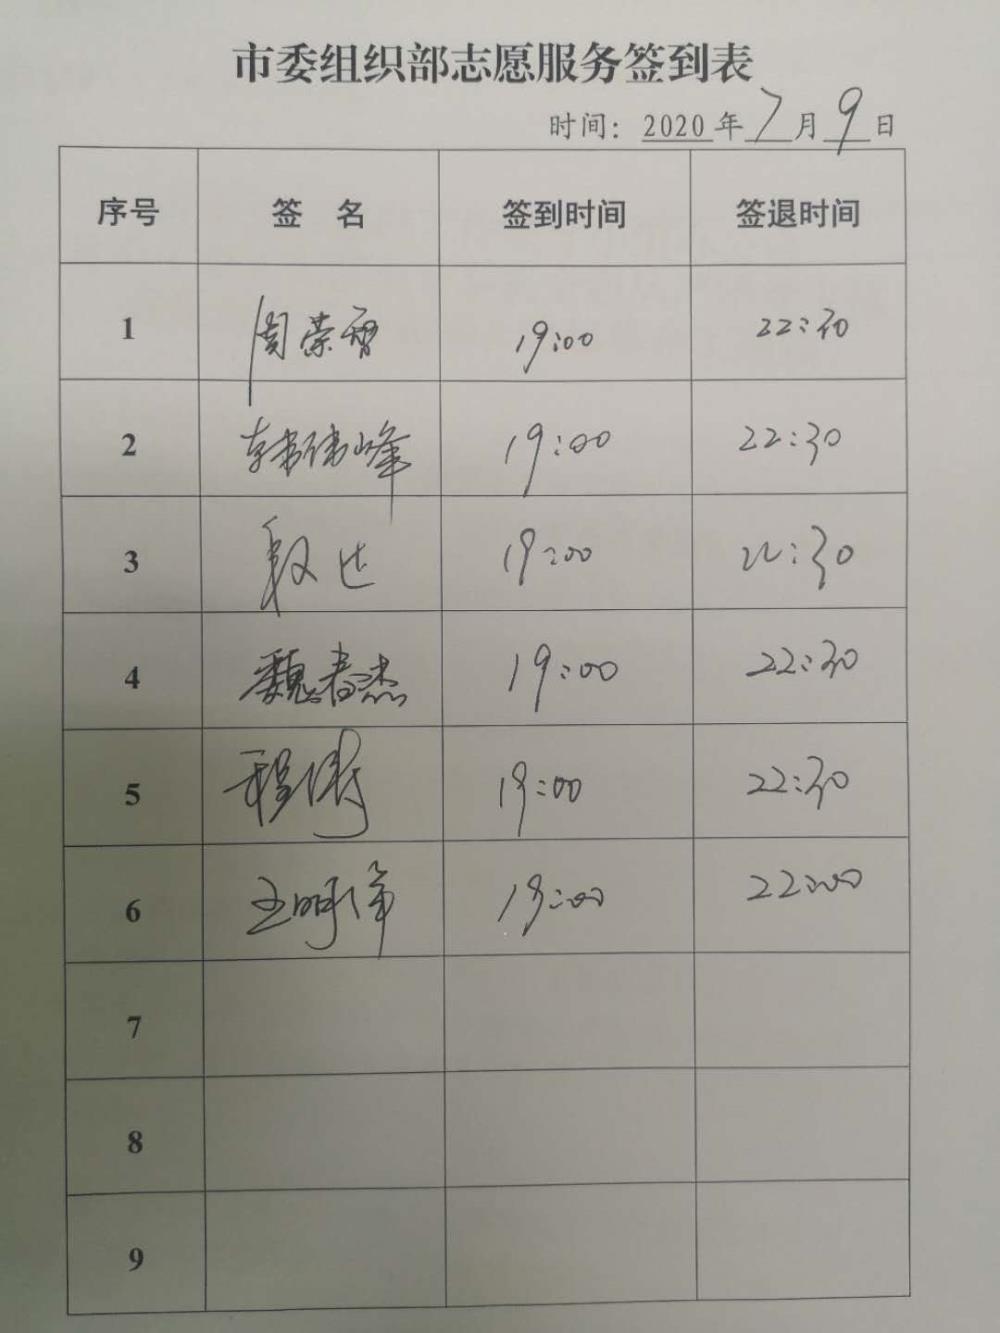 市委组织部志愿服务签到表
时间：2020年7月9日
序号 签 名 签到时间 签退时间
1 周荣智 19:00 22:30
2 韩伟峰 19:00 22:30
3 段达 19:00 22:30
4 魏春杰 19:00 22:30
5 程 19:00 22:30
6 王明 19:00 22:00
7
8
9